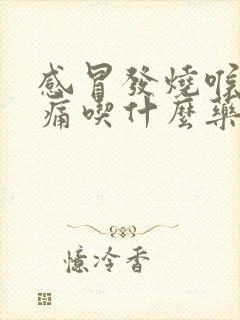 感冒發燒喉
痛喫什麼藥
憶冷香